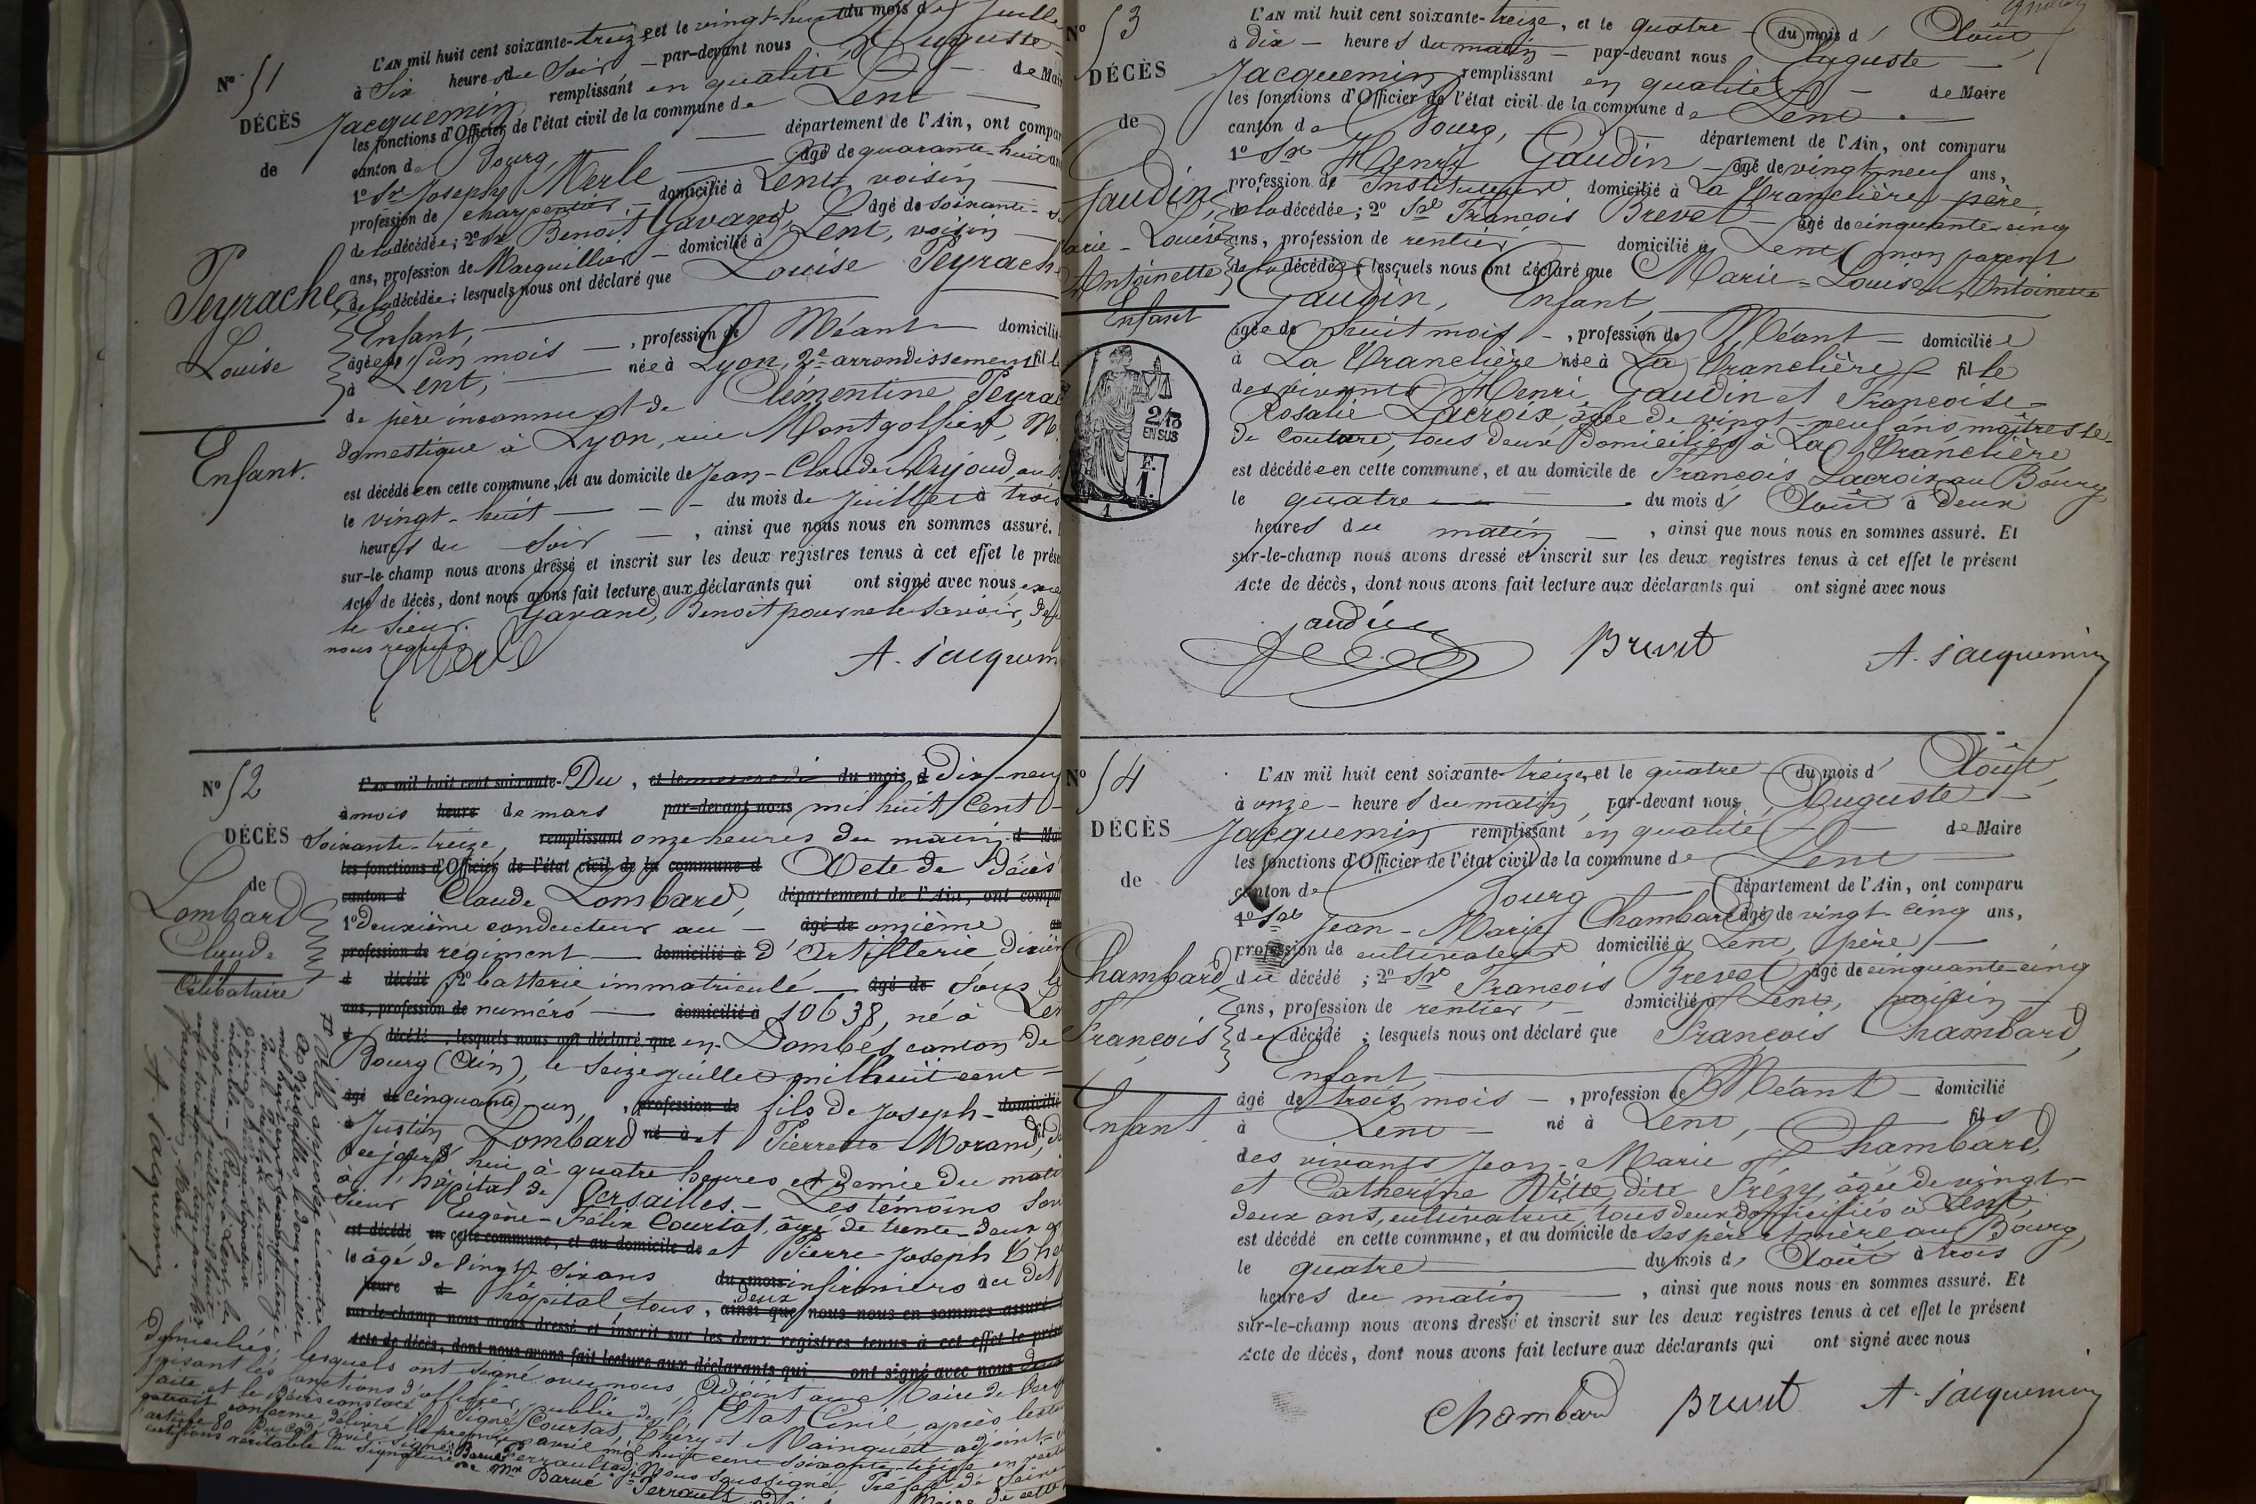 N° 51
DÉCÈS
de
Peyrache
Louise
Enfant.
L'AN mil huit cent soixante-treize et le vingt-huit du mois de Juillet
à six heures du soir par-devant nous Auguste
Jacquemin remplissant en qualité de Maire
les fonctions d'Officier de l'état civil de la commune de Lent
canton de Bourg, département de l'Ain, ont comparu
1° Sr Joseph Merle âgé de quarante-huit ans
profession de charpentier domicilié à Lent, voisin
de la décédée; 2° Sr Benoit Gavand âgé de soixante-
ans, profession de Marguillier domicilié à Lent, voisin
de la décédée; lesquels nous ont déclaré que Louise Peyrache
Enfant,
âgée de un mois, profession de Néant domicilié
à Lent, née à Lyon, 2e arrondissement fille
de père inconnu et de Clémentine Peyrac
domestique à Lyon, rue Montgolfier, N°
est décédée en cette commune, et au domicile de Jean-Claude Dujoud, au
le vingt-huit du mois de juillet à trois
heures du soir, ainsi que nous nous en sommes assuré.
sur-le-champ nous avons dressé et inscrit sur les deux registres tenus à cet effet le prése
Acte de décès, dont nous avons fait lecture aux déclarants qui ont signé avec nous, exce
le sieur Gavand, Benoit pour ne le savoir, de
nous requis
Merle A. Jacquem
N° 52
DÉCÈS
de
Lombard
Claude
Célibataire
L'AN mil huit cent soixante- Du, et le mercredi du mois d Dix-neuf
à mois heure de mars par-devant nous mil huit Cent-
Soixante-treize, remplissant onze heures du matin d Mai
les fonctions d'Officier de l'état civil de la commune d Acte de Décès
canton d Claude Lombard, département de l'Ain, ont compa
1° deuxième conducteur au âgé de onzième
profession de régiment domicilié à d'Artillerie, dixièm
d décédé 2° batterie immatriculé âgé de sous le
ans, profession de numéro domicilié à 10638, né à Len
d décédé; lesquels nous ont déclaré que en-Dombes, canton de
Bourg (Ain), le seize juillet mil huit cent
âgé de cinquante-un, profession de fils de Joseph- domicilié
à Justin Lombard né à et Pierrette Morand, fil dé
aujourd'hui, à quatre heures et demie du mati
à l'hôpital de Versailles. Les témoins son
sieur Eugène-Félix Courtat, âgé de trente-deux a
est décédé en cette commune, et au domicile de et Pierre-Joseph Thé
le âgé de vingt-six ans du mois infirmiers au dit
heure d hôpital, tous deux, ainsi que nous nous en sommes assuré
sur-le-champ nous avons dressé et inscrit sur les deux registres tenus à cet effet le prése
Acte de décès, dont nous avons fait lecture aux déclarants qui ont signé avec nous
domiciliés; lesquels ont signé avec nous, Adjoint au Maire de Vers
faisant les fonctions d'officier public de l'Etat Civil, après lectu
faite et le décès constaté. Signé: Courtat, Théry et Mainguet adjoint
extrait conforme délivré le premier avril mil huit cent soixante-treize en vertu
article 80 du Code civil. Nous soussigné, Préfet de Seine
certifions véritable la signature de Mr Barué Perrault, Maire de cette
A. Jacquemin
N° 53
DÉCÈS
de
Gaudin,
Marie-Louise
Antoinette
Enfant
2/10
EN SUS
L'AN mil huit cent soixante-treize, et le quatre du mois d'Août
à dix heures du matin par-devant nous Auguste
Jacquemin remplissant en qualité de Maire
les fonctions d'Officier de l'état civil de la commune de Lent
canton de Bourg, département de l'Ain, ont comparu
1° Sr Henry Gaudin âgé de vingt-neuf ans,
profession de Instituteur domicilié à La Tranclière, père
de la décédée; 2° Sr François Brevet âgé de cinquante-cinq
ans, profession de rentier domicilié à Lent, non parent
de la décédée; lesquels nous ont déclaré que Marie-Louise Antoinette
Gaudin, Enfant,
âgée de huit mois, profession de Néant domiciliée
à La Tranclière née à La Tranclière fille
des vivants Henri Gaudin et Françoise-
Rosalie Lacroix, âgée de vingt-neuf ans, maîtresse
de couture, tous deux domiciliés à La Tranclière
est décédée en cette commune, et au domicile de François Lacroix au Bourg
le quatre du mois d'Août à deux
heures du matin, ainsi que nous nous en sommes assuré. Et
sur-le-champ nous avons dressé et inscrit sur les deux registres tenus à cet effet le présent
Acte de décès, dont nous avons fait lecture aux déclarants qui ont signé avec nous
Gaudin Brevet A. Jacquemin
N° 54
DÉCÈS
de
Chambard,
François
Enfant
L'AN mil huit cent soixante-treize, et le quatre du mois d'Août,
à onze heures du matin, par-devant nous Auguste
Jacquemin remplissant en qualité de Maire
les fonctions d'Officier de l'état civil de la commune de Lent
canton de Bourg département de l'Ain, ont comparu
1° Sr Jean-Marie Chambard âgé de vingt-cinq ans,
profession de cultivateur domicilié à Lent, père
du décédé; 2° Sr François Brevet âgé de cinquante-cinq
ans, profession de rentier domicilié à Lent, voisin
de décédé; lesquels nous ont déclaré que François Chambard,
Enfant,
âgé de trois mois, profession de Néant domicilié
à Lent né à Lent, fils
des vivants Jean-Marie Chambard,
et Catherine Vitte dite Frézy, âgée de vingt-
deux ans, cultivatrice, tous deux domiciliés à Lent,
est décédé en cette commune, et au domicile de ses père et mère au Bourg,
le quatre du mois d'Août à trois
heures du matin, ainsi que nous nous en sommes assuré. Et
sur-le-champ nous avons dressé et inscrit sur les deux registres tenus à cet effet le présent
Acte de décès, dont nous avons fait lecture aux déclarants qui ont signé avec nous
Chambard Brevet A. Jacquemin